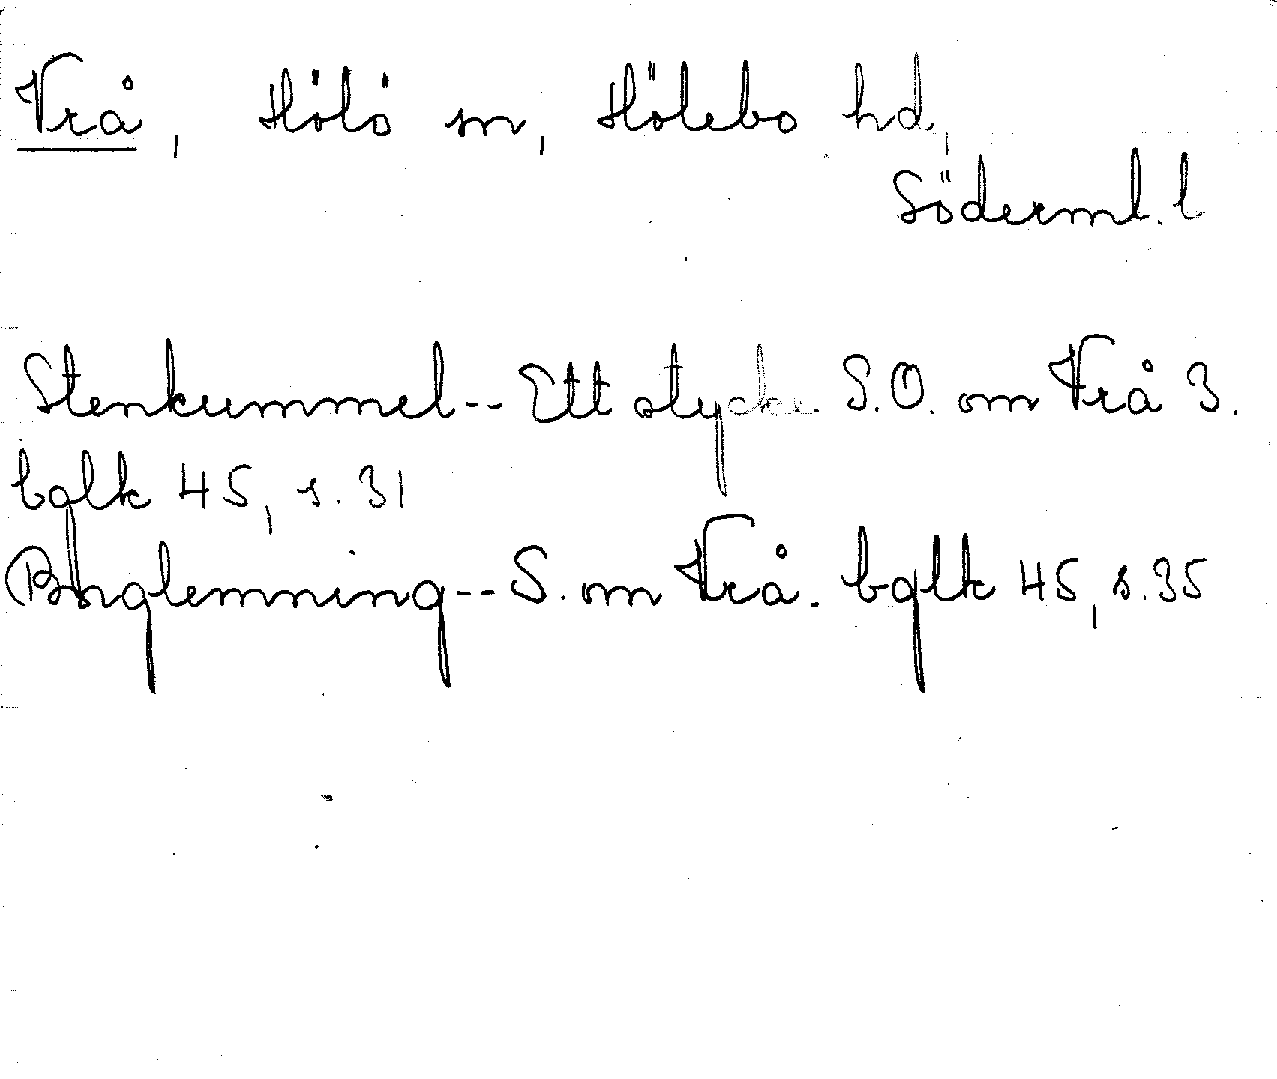 Vrå, Hölö sn, Hölebo hd,
Söderml. l
Stenkummel-- Ett stycke S.O. om Vrå 3.
bglk 45, s. 31
Borglemning-- S. om Vrå. bglk 45, s. 35